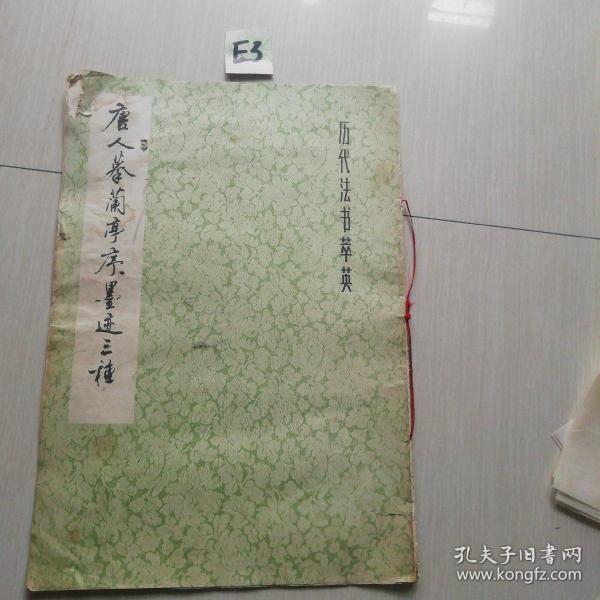 E3
历代法书萃英
唐人摹蘭亭序墨迹三種
孔夫子旧书网
www.kongfz.com